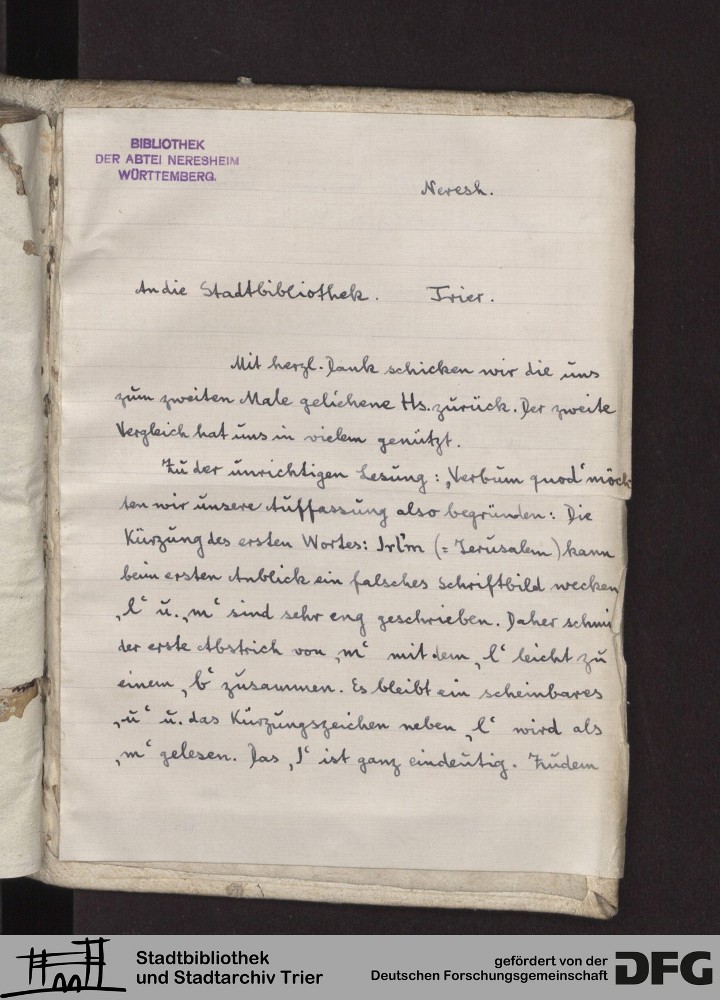 BIBLIOTHEK
DER ABTEI NERESHEIM
WÜRTTEMBERG.
Neresh.
An die Stadtbibliothek. Trier.
Mit herzl. Dank schicken wir die uns
zum zweiten Male geliehene Hs. zurück. Der zweite
Vergleich hat uns in vielem genützt.
Zu der unrichtigen Lesung: „Verbum quod“ möch
ten wir unsere Auffassung also begründen: Die
Kürzung des ersten Wortes: Irl'm (= Jerusalem) kann
beim ersten Anblick ein falsches Schriftbild wecken
„l“ u. „m“ sind sehr eng geschrieben. Daher schmi
der erste Abstrich von „m“ mit dem „l“ leicht zu
einem „b“ zusammen. Es bleibt ein scheinbares
„u“ u. das Kürzungszeichen neben „l“ wird als
„m“ gelesen. Das „I“ ist ganz eindeutig. Zudem
Stadtbibliothek
und Stadtarchiv Trier
gefördert von der
Deutschen Forschungsgemeinschaft
DFG